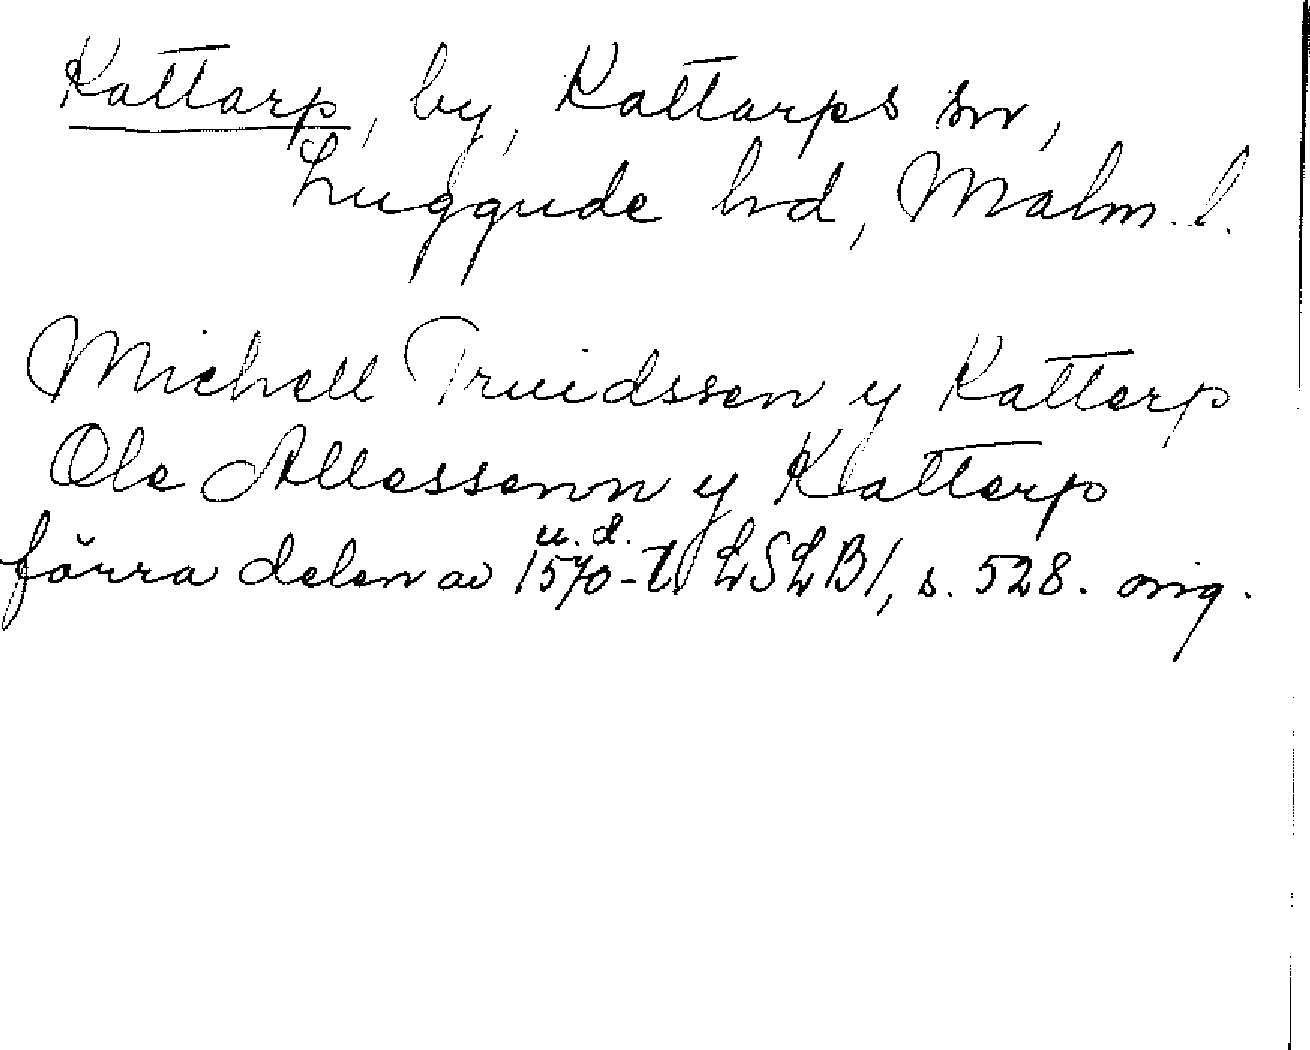 Kattarp, by, Kattarps sn,
Luggude hd, Malm. l.
Michell Truidssen y Katterp
Ole Allessenn y Katterp
u. d.
förra delen av 1570-t. LSLB1, s. 528. orig.